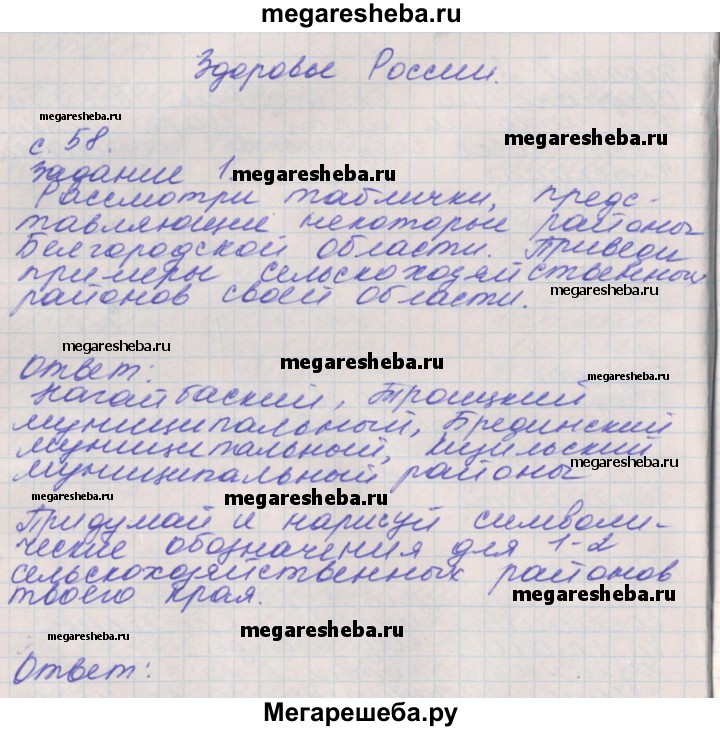 megaresheba.ru
Здоровье России.
megaresheba.ru
с. 58.
megaresheba.ru
Задание 1
megaresheba.ru
Рассмотри таблички, предс-
тавляющие некоторые районы
Белгородской области. Приведи
примеры сельскохозяйственных
megaresheba.ru
районов своей области.
megaresheba.ru
megaresheba.ru
Ответ:
megaresheba.ru
Нагайбаский, Троицкий
муниципальный, Брединский
муниципальный, Кизильский
megaresheba.ru
муниципальный районы
megaresheba.ru
megaresheba.ru
Придумай и нарисуй символи-
ческие обозначения для 1-2
сельскохозяйственных районов
твоего края.
megaresheba.ru
megaresheba.ru
megaresheba.ru
Ответ:
Мегарешеба.ру